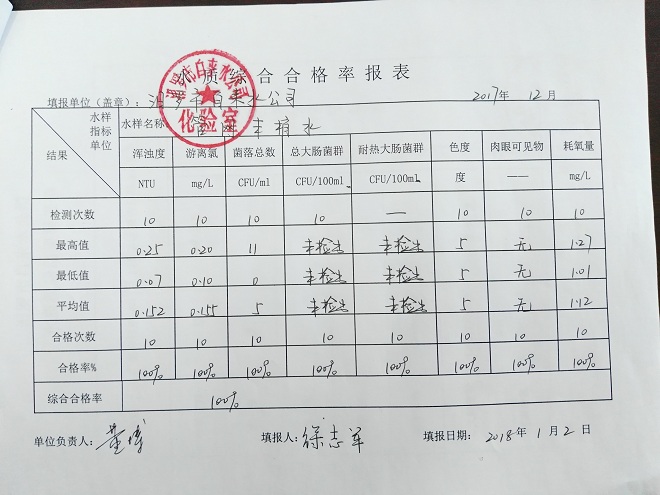 水质综合合格率报表
填报单位(盖章): 汨罗市自来水公司 2017年 12月
汨罗市自来水公司
化验室
水样 水样名称 管网末梢水
指标 浑浊度 游离氯 菌落总数 总大肠菌群 耐热大肠菌群 色度 肉眼可见物 耗氧量
单位 NTU mg/L CFU/ml CFU/100mL CFU/100mL 度 —— mg/L
结果
检测次数 10 10 10 10 — 10 10 10
最高值 0.25 0.20 11 未检出 未检出 5 无 1.27
最低值 0.07 0.10 0 未检出 未检出 5 无 1.01
平均值 0.152 0.155 5 未检出 未检出 5 无 1.12
合格次数 10 10 10 10 10 10 10 10
合格率% 100% 100% 100% 100% 100% 100% 100% 100%
综合合格率 100%
单位负责人: 填报人: 徐志军 填报日期: 2018年1月2日